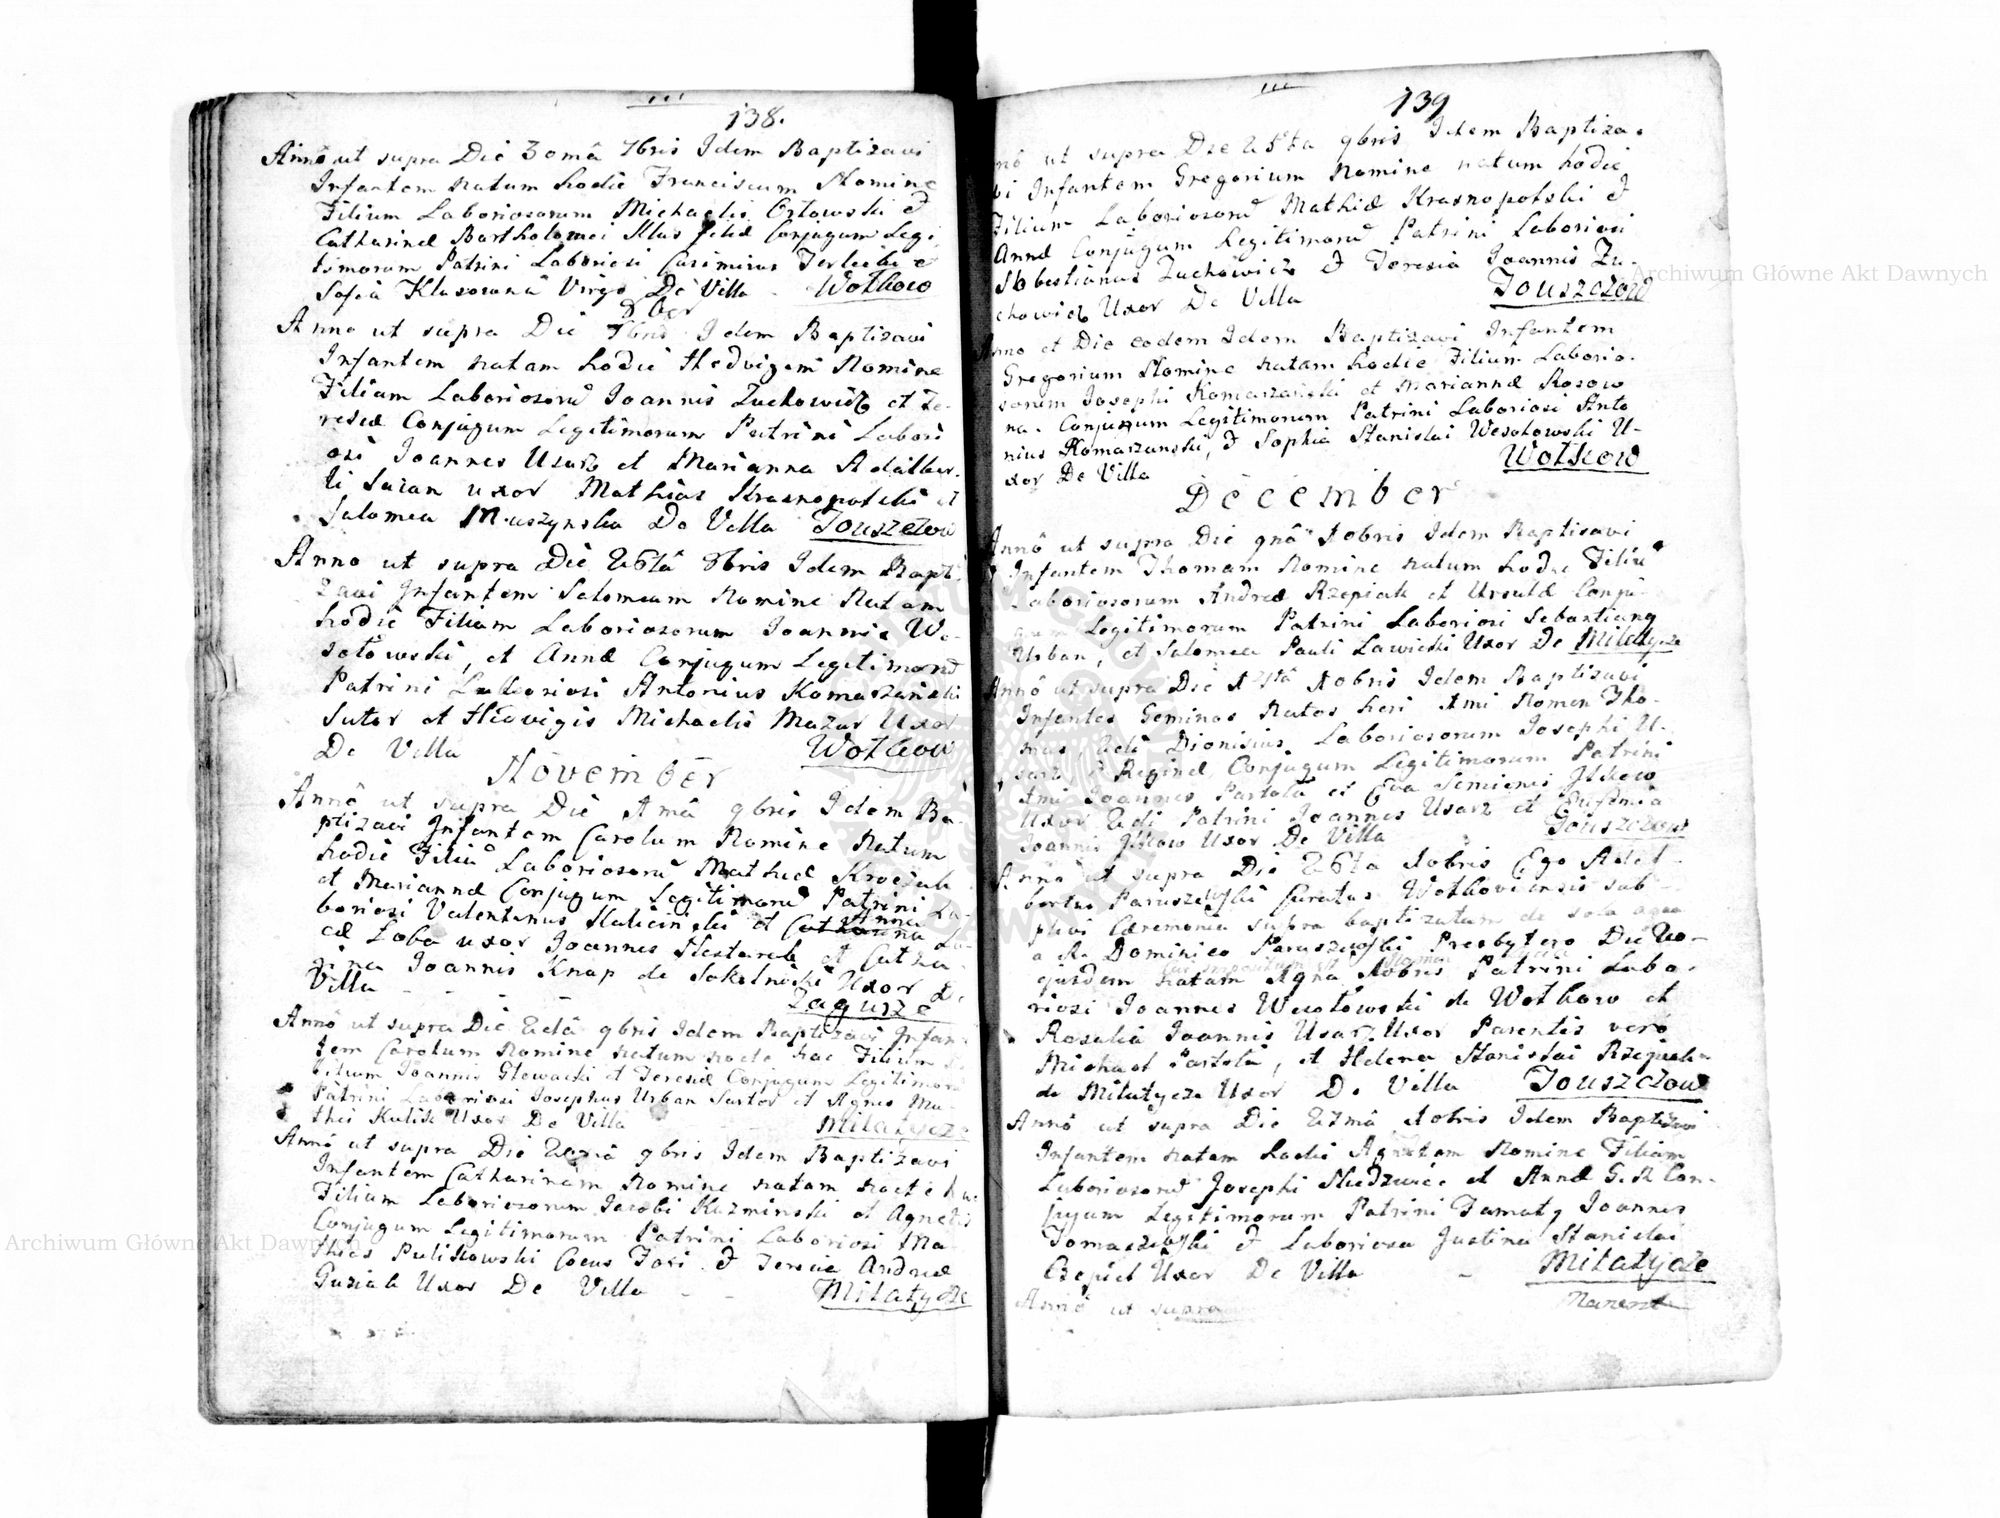 138.
Annô ut supra Die 30mâ 7bris Idem Baptizavi
Infantem natum hodie Franciscum Nomine
Filium Laboriosorum Michaelis Ortowski &
Catharinæ Bartholomei Klus filiæ Conjugum Legi
timorum Patrini Laboriosi Casimirus Terlecki et
Sofia Klusowna Virgo De Villa Wotkow
8ber
Anno ut supra Die Idem Baptizavi
Infantem natam hodie Hedvigem Nomine
Filiam Laboriosorū Joannis Zuchowicz et Te-
resiæ Conjugum Legitimorum Patrini Labori
osi Joannes Usarz et Marianna Adalber-
ti uxor Mathias Krasnopolski et
Salomea Muszynska De Villa Touszczow
Anno ut supra Die 26tâ 8bris Idem Bapti
zavi Infantem Salomeam Nomine Natam
hodie Filiam Laboriosorum Joannis We-
sotowski, et Annæ Conjugum Legitimorū
Patrini Laboriosi Antonius Komarzanski
Sutor et Hedvigis Michaelis Mazur Uxor
De Villa Wotkow
Növembër
Annô ut supra Die Amâ 9bris Idem Ba-
ptizavi Infantem Carolum Nomine Natum
hodie Filiū Laboriosorū Mathiæ
et Mariannæ Conjugum Legitimorū Patrini La-
boriosi Valentinus et Anna
Zoba uxor Joannes et Catha-
rina Joannis Knap de Uxor De
Villa Zagurze
Annô ut supra Die 22dâ 9bris Idem Baptizavi Infan-
tem Carolum Nomine natum nocte hac Filium
Joannis Glowacki et Teresiæ Conjugum Legitimorū
Patrini Laboriosi Josephus Urban Sartor et Agnes Ma-
thei Kulik Uxor De Villa Milatycze
Annô ut supra Die 9bris Idem Baptizavi
Infantem Catharinam Nomine natam nocte hac
Filiam Laboriosorum Jacobi Kuzminski et Agnetis
Conjugum Legitimorum Patrini Laboriosi Ma-
thias Pulikowski Cocus & Teresia Andreæ
Guziak Uxor De Villa Milatycze
139
nô ut supra Die 25ta 9bris Idem Baptiza-
vi Infantem Gregorium Nomine natum hodie
Filium Laboriosorū Mathiæ Krasnopolski &
Annæ Conjugum Legitimorū Patrini Laboriosi
Sebestianus Zuchowicz & Teresia Joannis Zu-
chowicz Uxor De Villa Touszczow
nno et Die eodem Idem Baptizavi Infantem
Gregorium Nomine natam hodie Filium Laborio-
sorum Josephi Komarzanski et Mariannæ Rosow
na. Conjugum Legitimorum Patrini Laboriosi Anto
nius Komarzanski, & Sophia Stanislai Wesotowski U-
xor De Villa Wotkow
December
Annô ut supra Die 9nâ Xobris Idem Baptizavi
Infantem Thomam Nomine natum hodie Filiū
Laboriosorum Andreæ Rzepiak et Ursulæ Conju-
gum Legitimorum Patrini Laboriosi Sebastiang
Urban, et Salomea Pauli Lawicki Uxor De Milatycze
Annô ut supra Die Xobris Idem Baptizavi
Infantes Geminos Natos heri Ami Nomen Tho-
mas 2di Dionisius, Laboriosorum Josephi U-
sarz & Reginæ Conjugum Legitimorum Patrini
Ami Joannes Partota et Eva Semienis Jtkow
Uxor 2di Patrini Joannes Usarz et Eufemia
Joannis Jtkow Uxor De Villa Touszczow
Annô ut supra Die 26ta Xobris Ego Adal-
bertus Paruszewski Curatus Wotkoviensis sup-
plevi Ceremonia supra baptizatum de sola aqua
a R. Dominico Paruszewski Presbytero Die 20-
Cui impositum est Nomen
ejusdem natam Xobris Patrini Labo-
riosi Joannes Wesotowski de Wotkow et
Rosalia Joannis Usarz Uxor Parentis vero
Michael Partota, et Helena Stanislai Rzepiak
de Milatycze Uxor De Villa Touszczow
Annô ut supra Die 27mâ Xobris Idem Baptizavi
Infantem natam hodie Agnetem Nomine Filiam
Laboriosorū Josephi Niedzwiec et Annæ G. R. Con-
jugum Legitimorum Patrini Famaty Joannes
Tomaszewski & Laboriosa Justina Stanislai
Uxor De Villa Milatycze
Annô ut supra
Archiwum Główne Akt Dawnych
Archiwum Główne Akt Dawnych